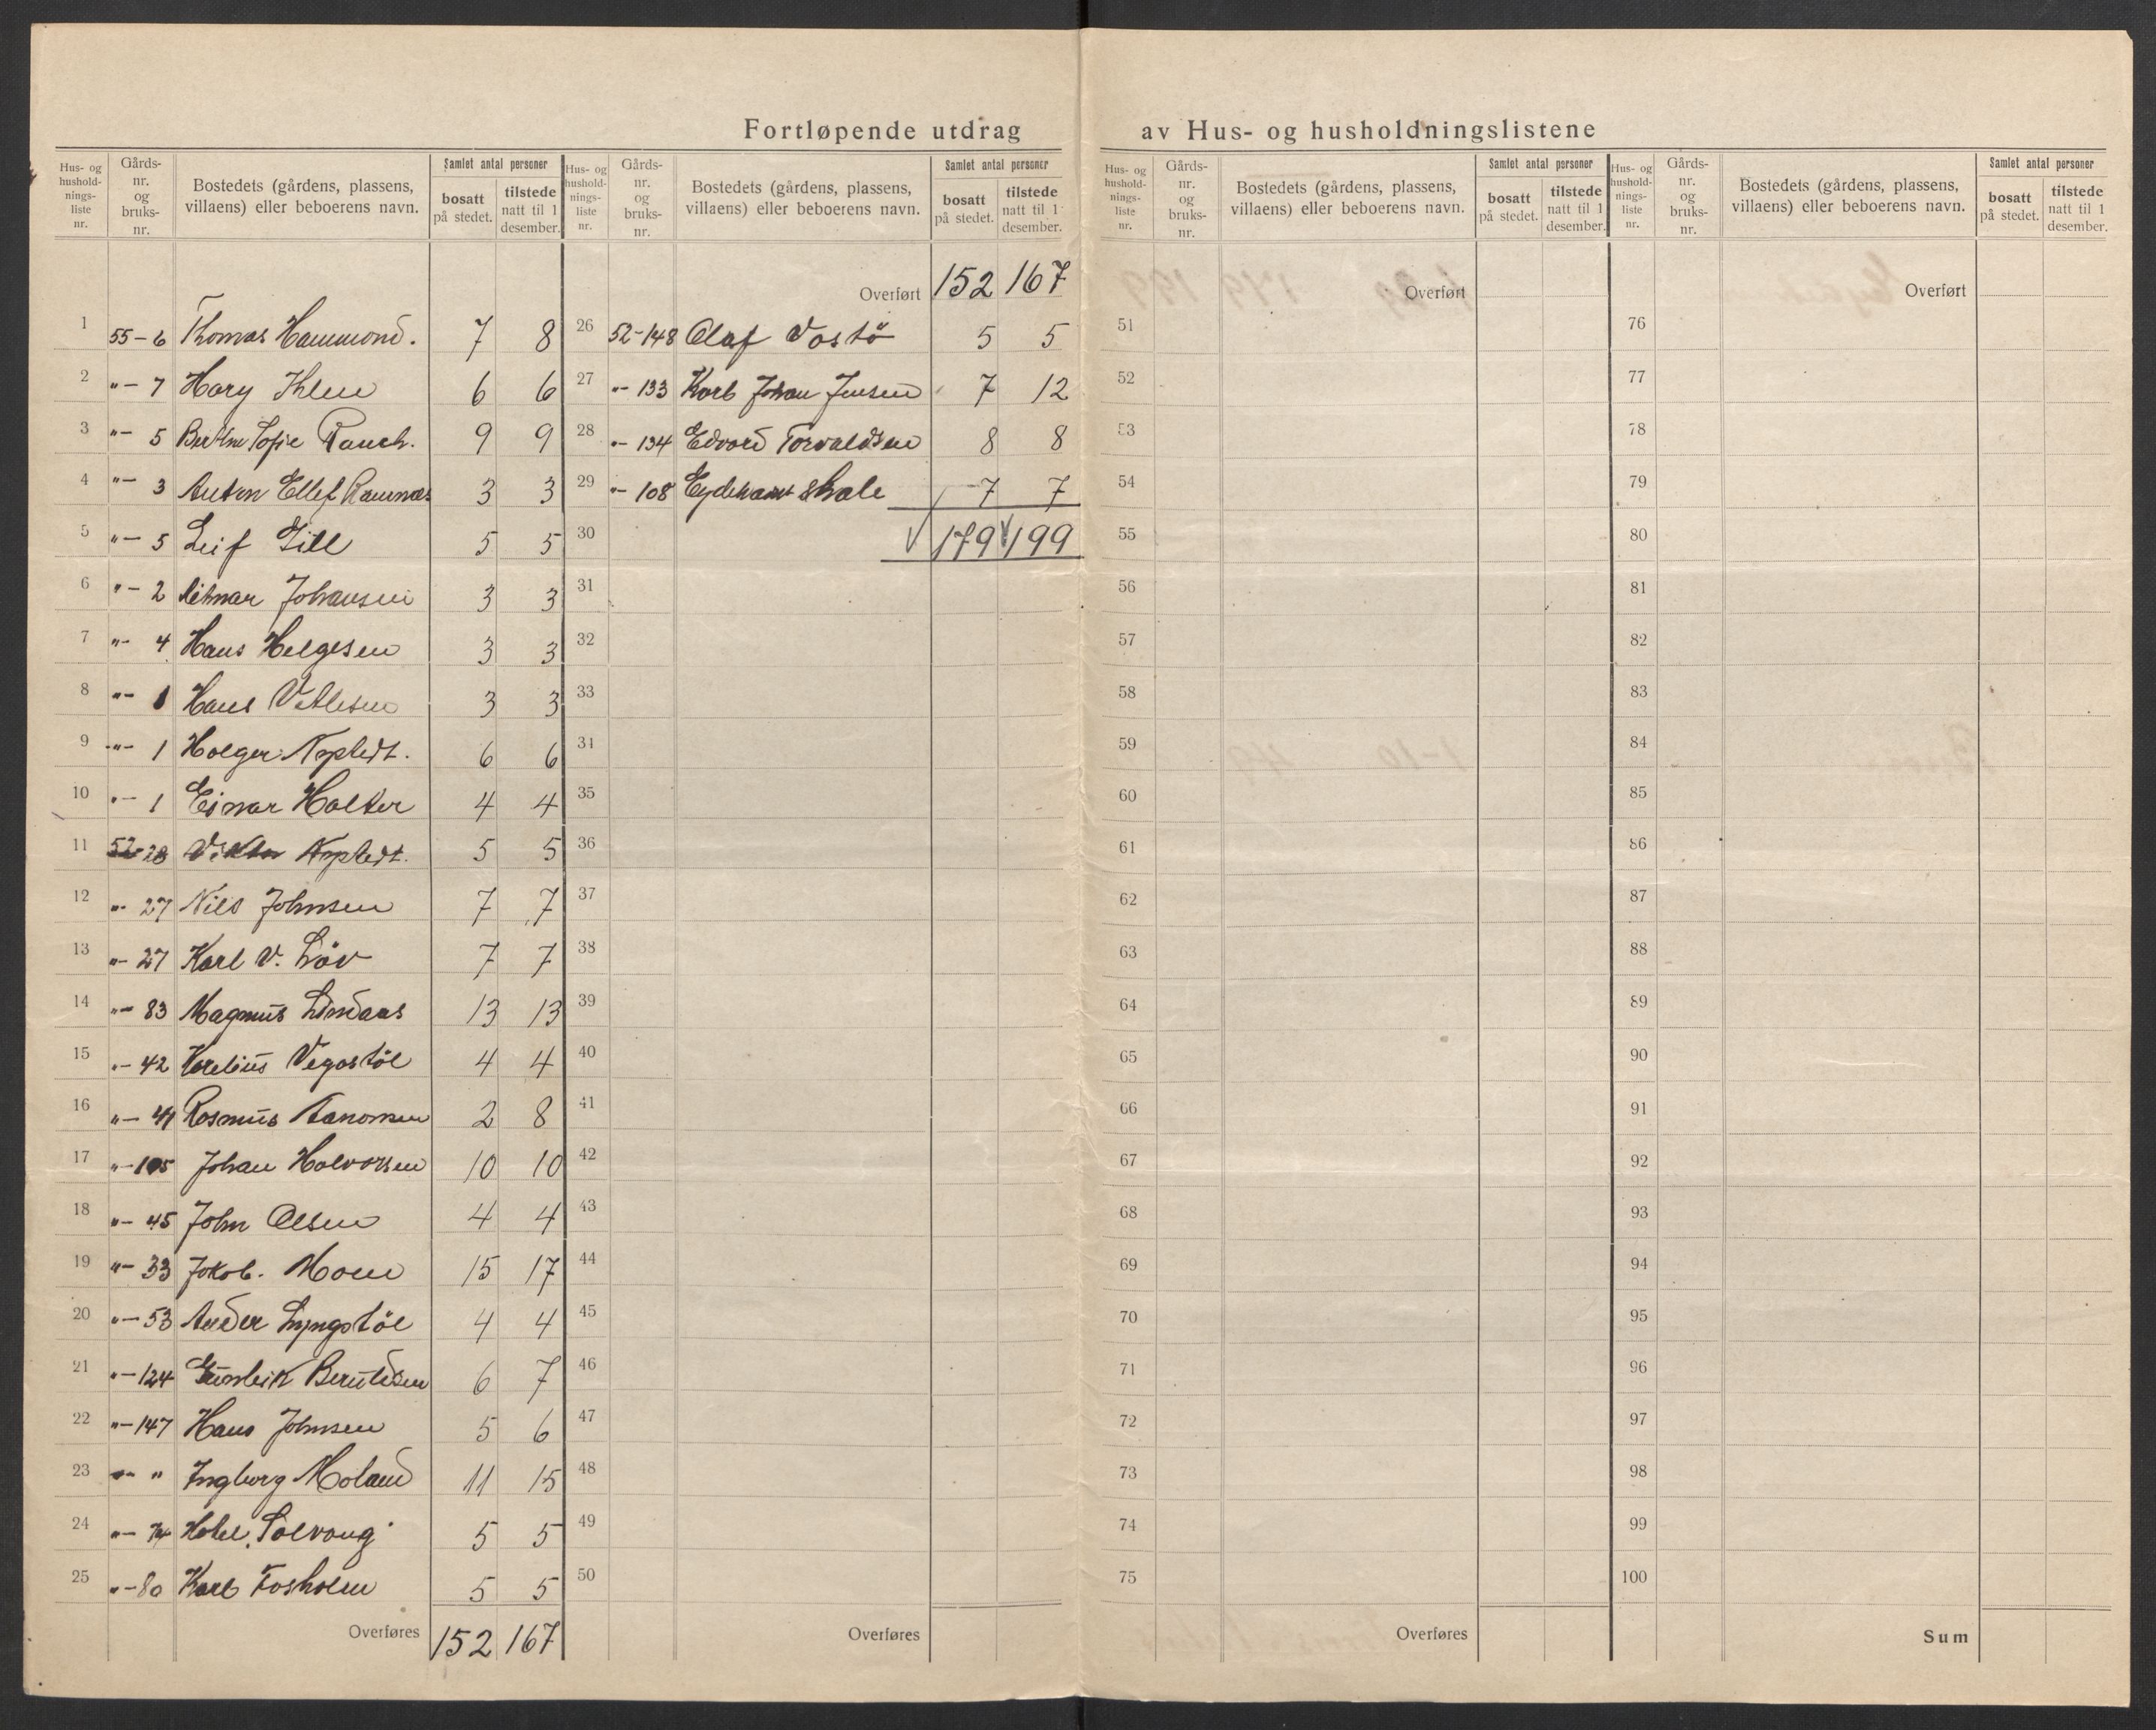 Fortløpende utdrag av Hus- og husholdningslistene
Hus- og hushold-nings-liste nr. Gårds-nr. og bruks-nr. Bostedets (gårdens, plassens, villaens) eller beboerens navn. Samlet antal personer bosatt på stedet. tilstede natt til 1 desember.
1 55-6 Thomas Hammond. 7 8
2 "- 7 Hary Ihlen 6 6
3 "- 5 Sofie Rauch. 9 9
4 "- 3 Anton Ellef Ramnæs 3 3
5 "- 5 Leif Gill 5 5
6 "- 2 Johansen 3 3
7 "- 4 Hans Helgesen 3 3
8 "- 1 Hans 3 3
9 "- 1 Holger Npstedt. 6 6
10 "- 1 Einar Holter 4 4
11 52-28 Viktor Npstedt. 5 5
12 "- 27 Nils Johnsen 7 7
13 "- 27 Karl V. Löv 7 7
14 "- 83 Magnus Lindaas 13 13
15 "- 42 Vegastöl 4 4
16 "- 41 Rasmus Aanonsen 2 8
17 "- 105 Johan Halvorsen 10 10
18 "- 45 John Olsen 4 4
19 "- 33 Jakob. Moen 15 17
20 "- 53 Lyngstöl 4 4
21 "- 124 Gunleik Beruldsen 6 7
22 "- 147 Hans Johnsen 5 6
23 "- " Ingborg Moland 11 15
24 "- 74 Hotel Solvang 5 5
25 "- 80 Karl Fosholm 5 5
Overføres 152 167
Hus- og hushold-nings-liste nr. Gårds-nr. og bruks-nr. Bostedets (gårdens, plassens, villaens) eller beboerens navn. Samlet antal personer bosatt på stedet. tilstede natt til 1 desember.
Overført 152 167
26 52-148 Olaf Vastö 5 5
27 "- 133 Karl Johan Jensen 7 12
28 "- 134 Edvard Torvaldsen 8 8
29 "- 108 Eydehavn skole 7 7
30 179 199
31
32
33
34
35
36
37
38
39
40
41
42
43
44
45
46
47
48
49
50
Overføres
Hus- og hushold-nings-liste nr. Gårds-nr. og bruks-nr. Bostedets (gårdens, plassens, villaens) eller beboerens navn. Samlet antal personer bosatt på stedet. tilstede natt til 1 desember.
Overført
51
52
53
54
55
56
57
58
59
60
61
62
63
64
65
66
67
68
69
70
71
72
73
74
75
Overføres
Hus- og hushold-nings-liste nr. Gårds-nr. og bruks-nr. Bostedets (gårdens, plassens, villaens) eller beboerens navn. Samlet antal personer bosatt på stedet. tilstede natt til 1 desember.
Overført
76
77
78
79
80
81
82
83
84
85
86
87
88
89
90
91
92
93
94
95
96
97
98
99
100
Sum